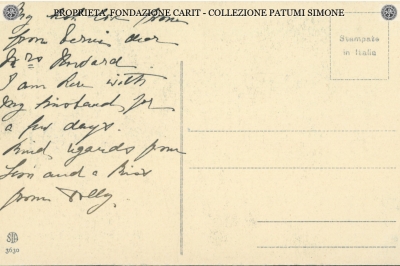 PROPRIETA' FONDAZIONE CARIT - COLLEZIONE PATUMI SIMONE
from dear
Mrs
I am here with
my husband for
a few days.
Kind regards from
and a kiss
from Dolly.
Stampato
in Italia
STA
3630